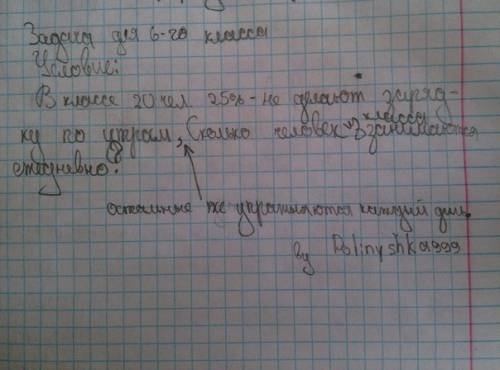 Задача для 6-го класса
Условие:
В классе 20 чел. 25% - не делают заряд-
ку по утрам, Сколько человек из класса занимаются
ежедневно?
остальные же упражняются каждый день.
by Polinyshka999